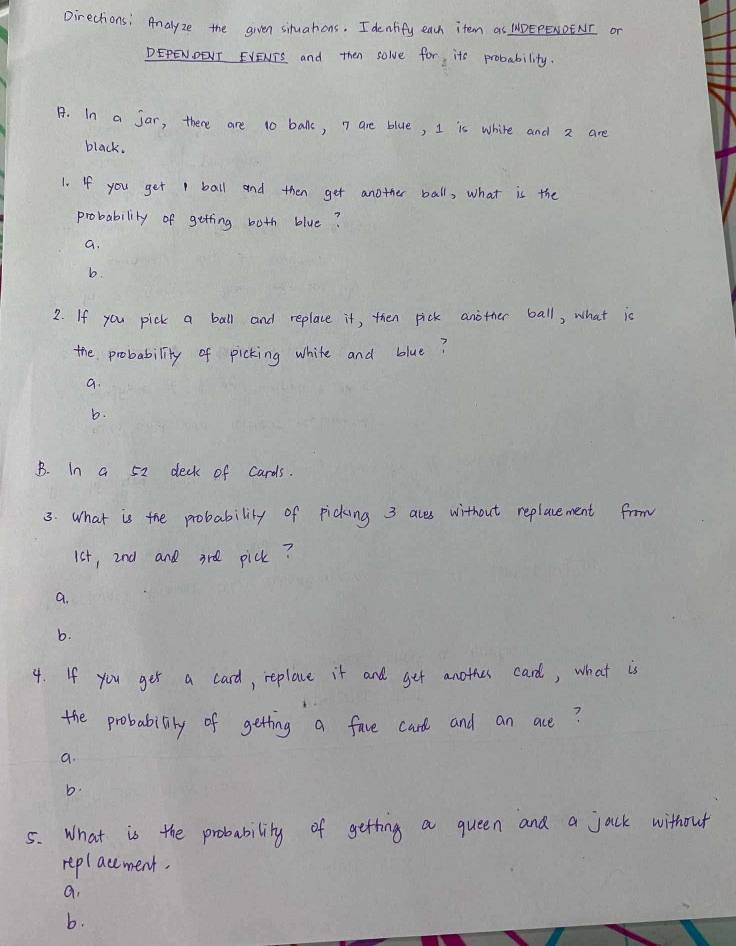 Directions: Analyze the given situations. Identify each item as INDEPENDENT or
DEPENDENT EVENTS and then solve for its probability.
A. In a jar, there are 10 balls, 7 are blue, 1 is white and 2 are
black.
1. If you get 1 ball and then get another ball, what is the
probability of getting both blue?
a.
b.
2. If you pick a ball and replace it, then pick another ball, what is
the probability of picking white and blue?
a.
b.
B. In a 52 deck of cards.
3. What is the probability of picking 3 aces without replacement from
1st, 2nd and 3rd pick?
a.
b.
4. If you get a card, replace it and get another card, what is
the probability of getting a face card and an ace?
a.
b.
5. What is the probability of getting a queen and a jack without
replacement.
a.
b.